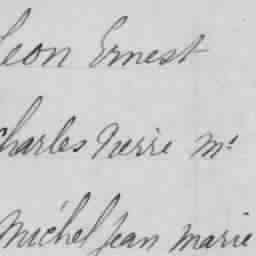 Leon Ernest
Charles Pierre Me
Michel Jean Marie